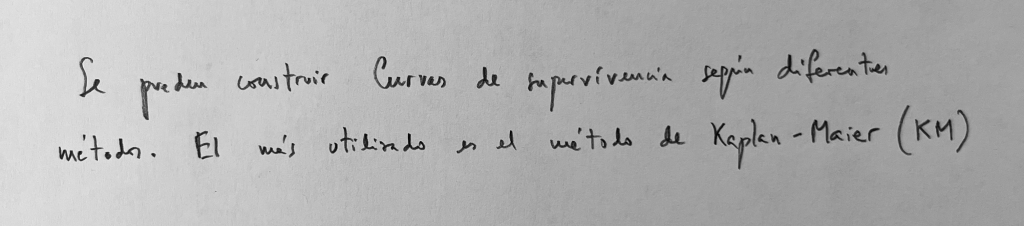 Se pueden construir Curvas de supervivencia según diferentes
métodos. El más utilizado es el método de Kaplan-Maier (KM)